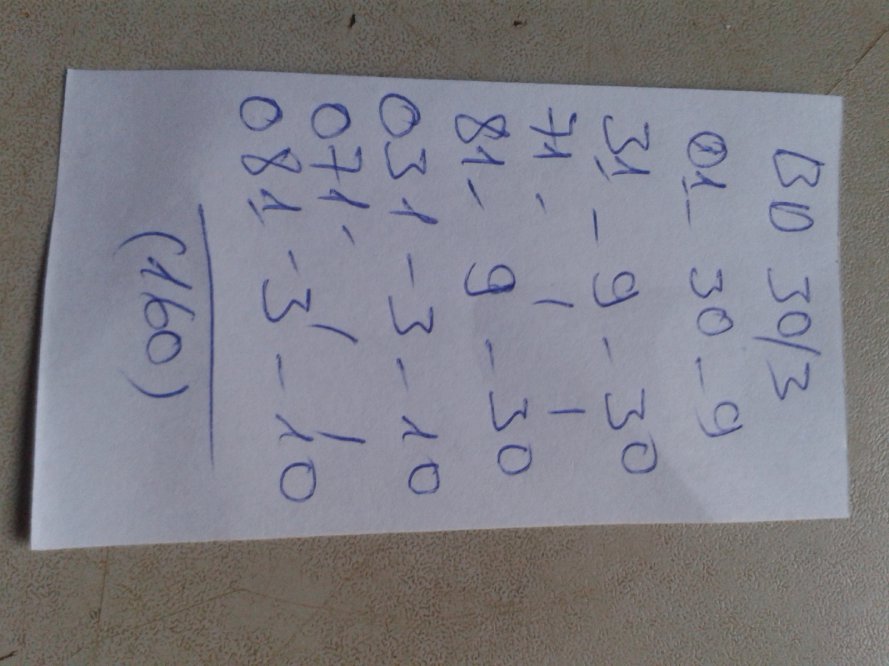 BD 30/3
01 - 30 - 9
31 - 9 - 30
71 - / /
81 - 9 - 30
031 - 3 - 10
071 - / /
081 - 3 - 10
(160)